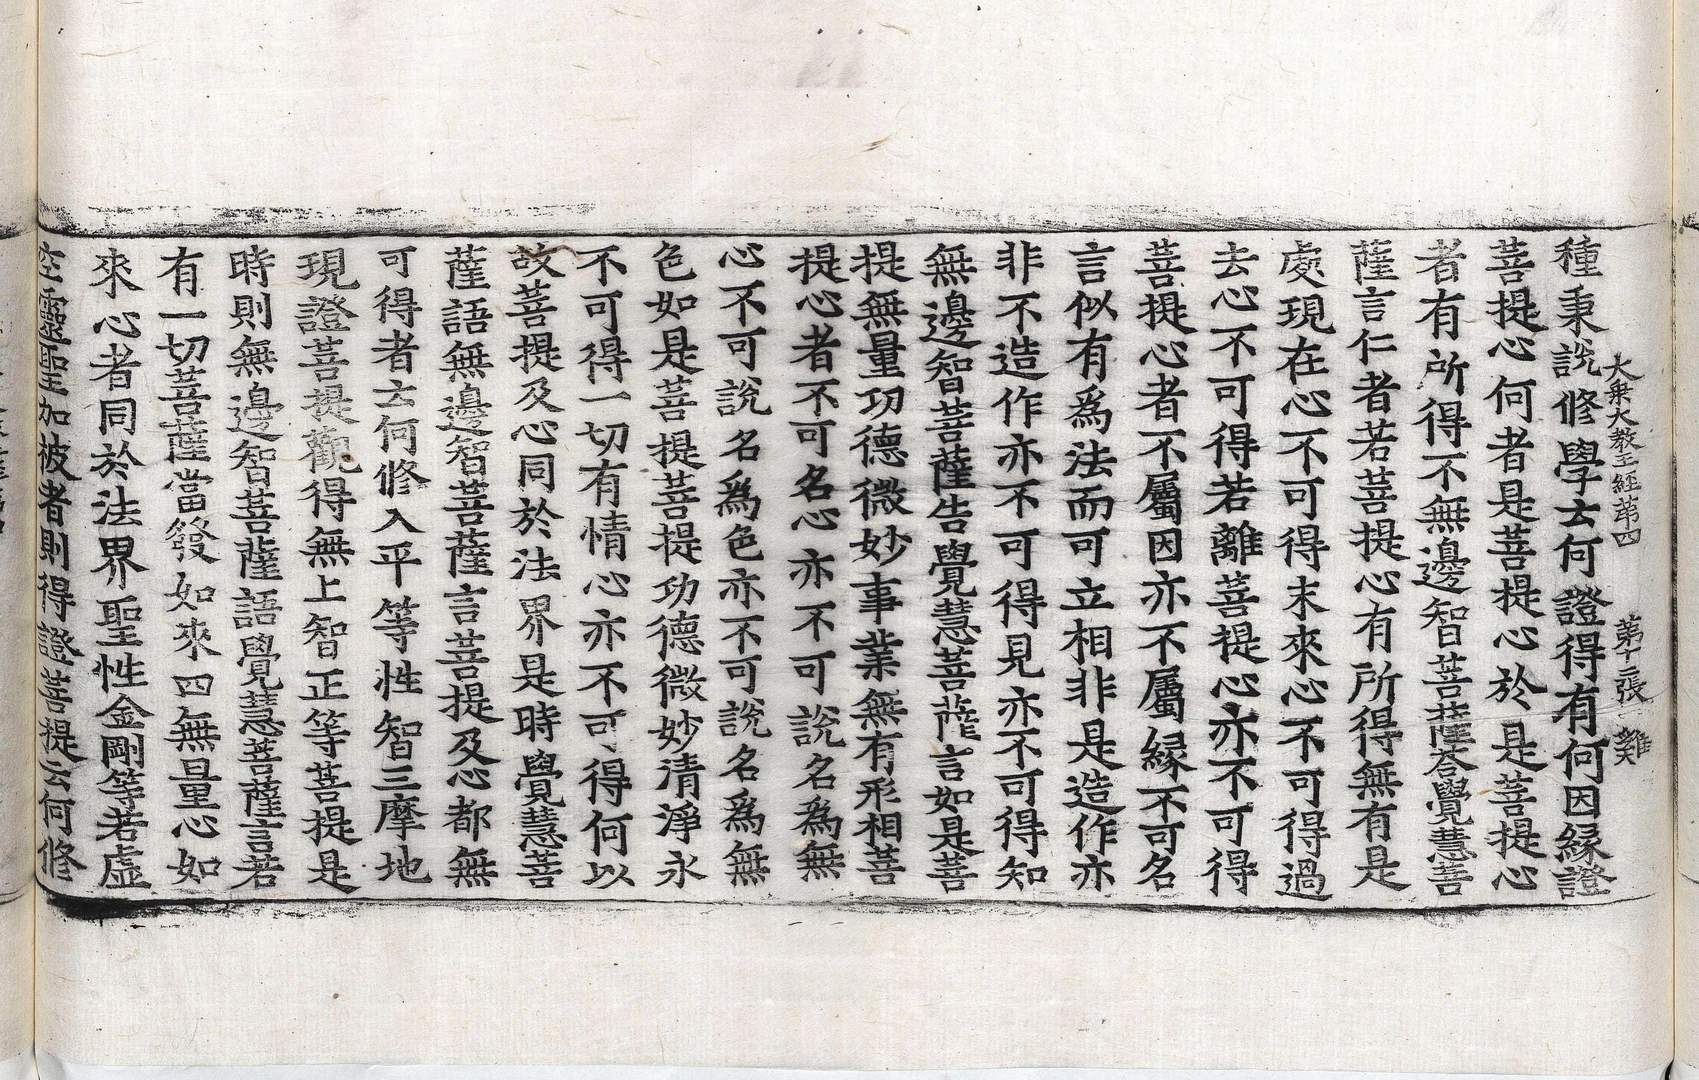 大乗大教王経苐四　苐十二張　難
種秉說修學云何證得有何因縁證
菩提心何者是菩提心於是菩提心
者有所得不無邊智菩薩荅覺慧菩
薩言仁者若菩提心有所得無有是
處現在心不可得未來心不可得過
去心不可得若離菩提心亦不可得
菩提心者不屬因亦不屬縁不可名
言似有為法而可立相非是造作亦
非不造作亦不可得見亦不可得知
無邊智菩薩告覺慧菩薩言如是菩
提無量功德微妙事業無有形相菩
提心者不可名心亦不可說名為無
心不可說名為色亦不可說名為無
色如是菩提菩提功德微妙清淨永
不可得一切有情心亦不可得何以
故菩提及心同於法界是時覺慧菩
薩語無邊智菩薩言菩提及心都無
可得者云何修入平等性智三摩地
現證菩提觀得無上智正等菩提是
時則無邊智菩薩語覺慧菩薩言若
有一切菩薩當發如來四無量心如
來心者同於法界聖性金剛等若虛
空靈聖加被者則得證菩提云何修